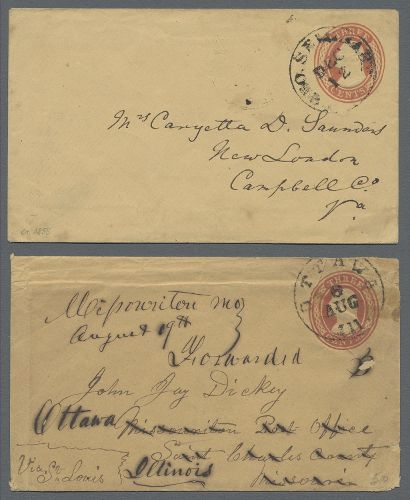 THREE
CENTS
DEC
12
Mrs Caryetta D. Saunders
New London
Campbell Co
Va
ca. 1855
THREE
OTTAWA
8
AUG
Ill
Missouriton Mo
August 19th
Forwarded
John Jay Dickey
Ottawa Missouriton Post Office
Saint Charles County
Via St Louis Illinois Missouri